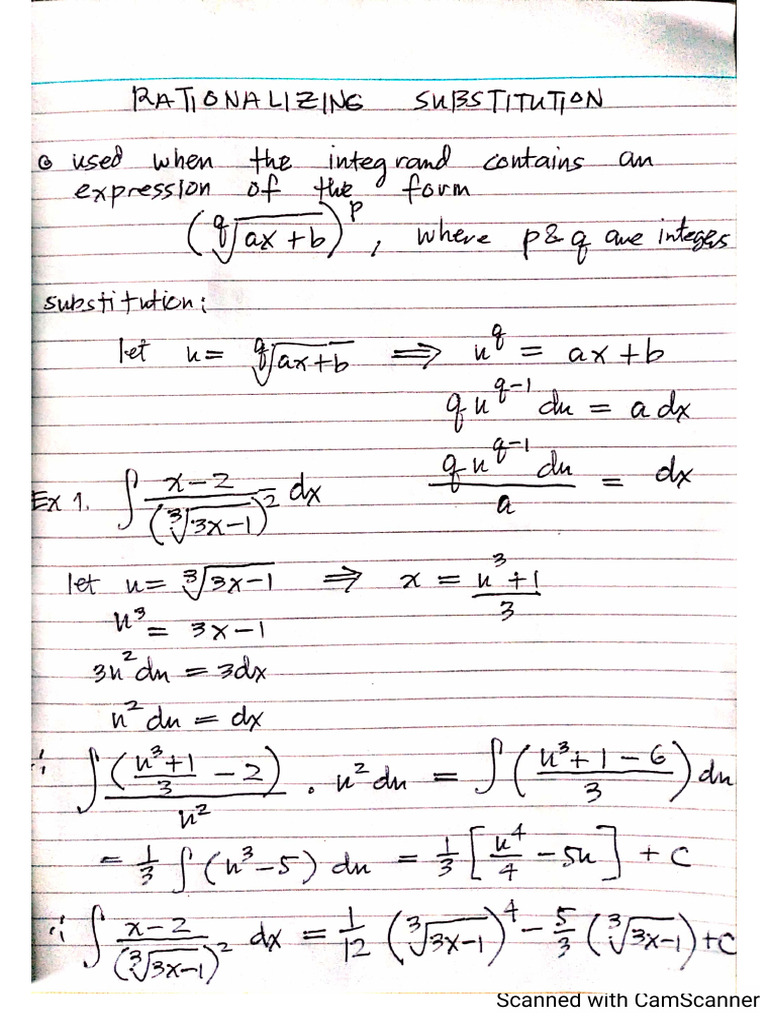 RATIONALIZING SUBSTITUTION
used when the integrand contains an
expression of the form
(\sqrt[q]{ax+b})^p, where p & q are integers
substitution:
let u = \sqrt[q]{ax+b} ⟹ u^q = ax+b
q u^{q-1} du = a dx
\frac{q u^{q-1} du}{a} = dx
Ex 1. ∫ \frac{x-2}{(\sqrt[3]{3x-1})^2} dx
let u = \sqrt[3]{3x-1} ⟹ x = \frac{u^3+1}{3}
u^3 = 3x-1
3u^2 du = 3dx
u^2 du = dx
∴ ∫ \frac{(\frac{u^3+1}{3} - 2)}{u^2} · u^2 du = ∫ (\frac{u^3+1-6}{3}) du
= \frac{1}{3} ∫ (u^3-5) du = \frac{1}{3} [\frac{u^4}{4} - 5u] + C
∴ ∫ \frac{x-2}{(\sqrt[3]{3x-1})^2} dx = \frac{1}{12} (\sqrt[3]{3x-1})^4 - \frac{5}{3} (\sqrt[3]{3x-1}) + C
Scanned with CamScanner